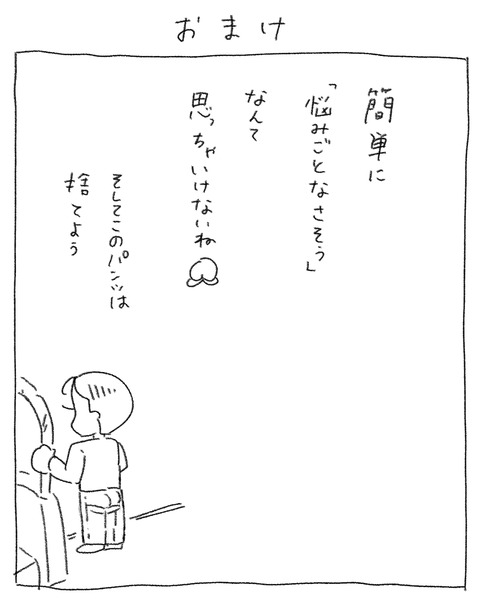 おまけ
簡単に
「悩みごとなさそう」
なんて
思っちゃいけないね
そしてこのパンツは
捨てよう